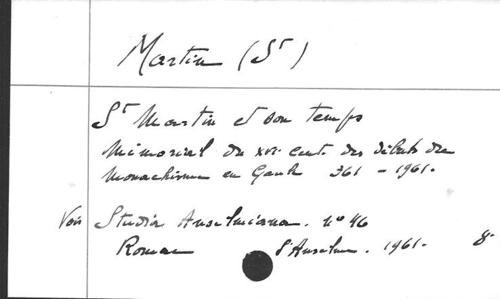 Martin (St)
St Martin et son temps
Mémorial du XVIe cent. des débuts du
Monachisme en Gaule 361 - 1961.
Voir Studia Anselmiana. n° 46
Romae S'Anselme. 1961. 8°